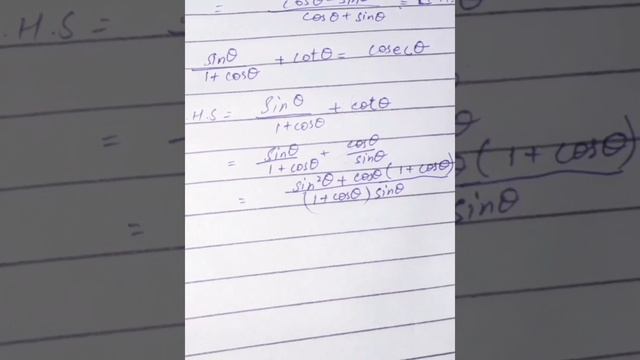 = cosθ - sinθ / cosθ + sinθ =
sinθ / 1 + cosθ + cotθ = cosecθ
H.S = sinθ / 1 + cosθ + cotθ
= sinθ / 1 + cosθ + cosθ / sinθ
= sin²θ + cosθ (1 + cosθ) / (1 + cosθ) sinθ